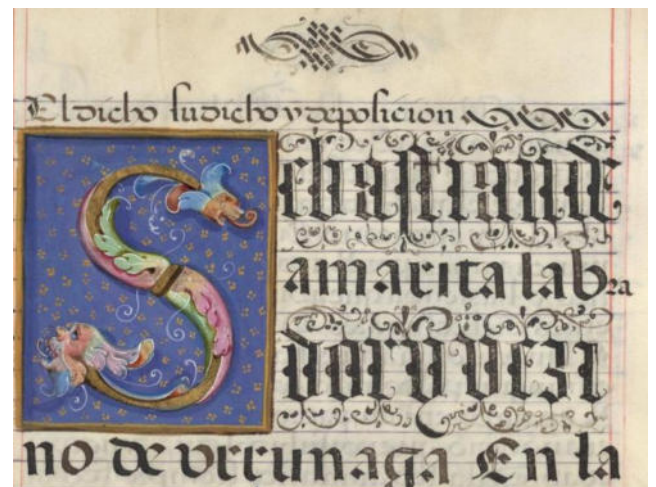 El dicho su dicho y deposicion
Sebastian de
amarita labra
dor y vezi
no de vrrunaga En la